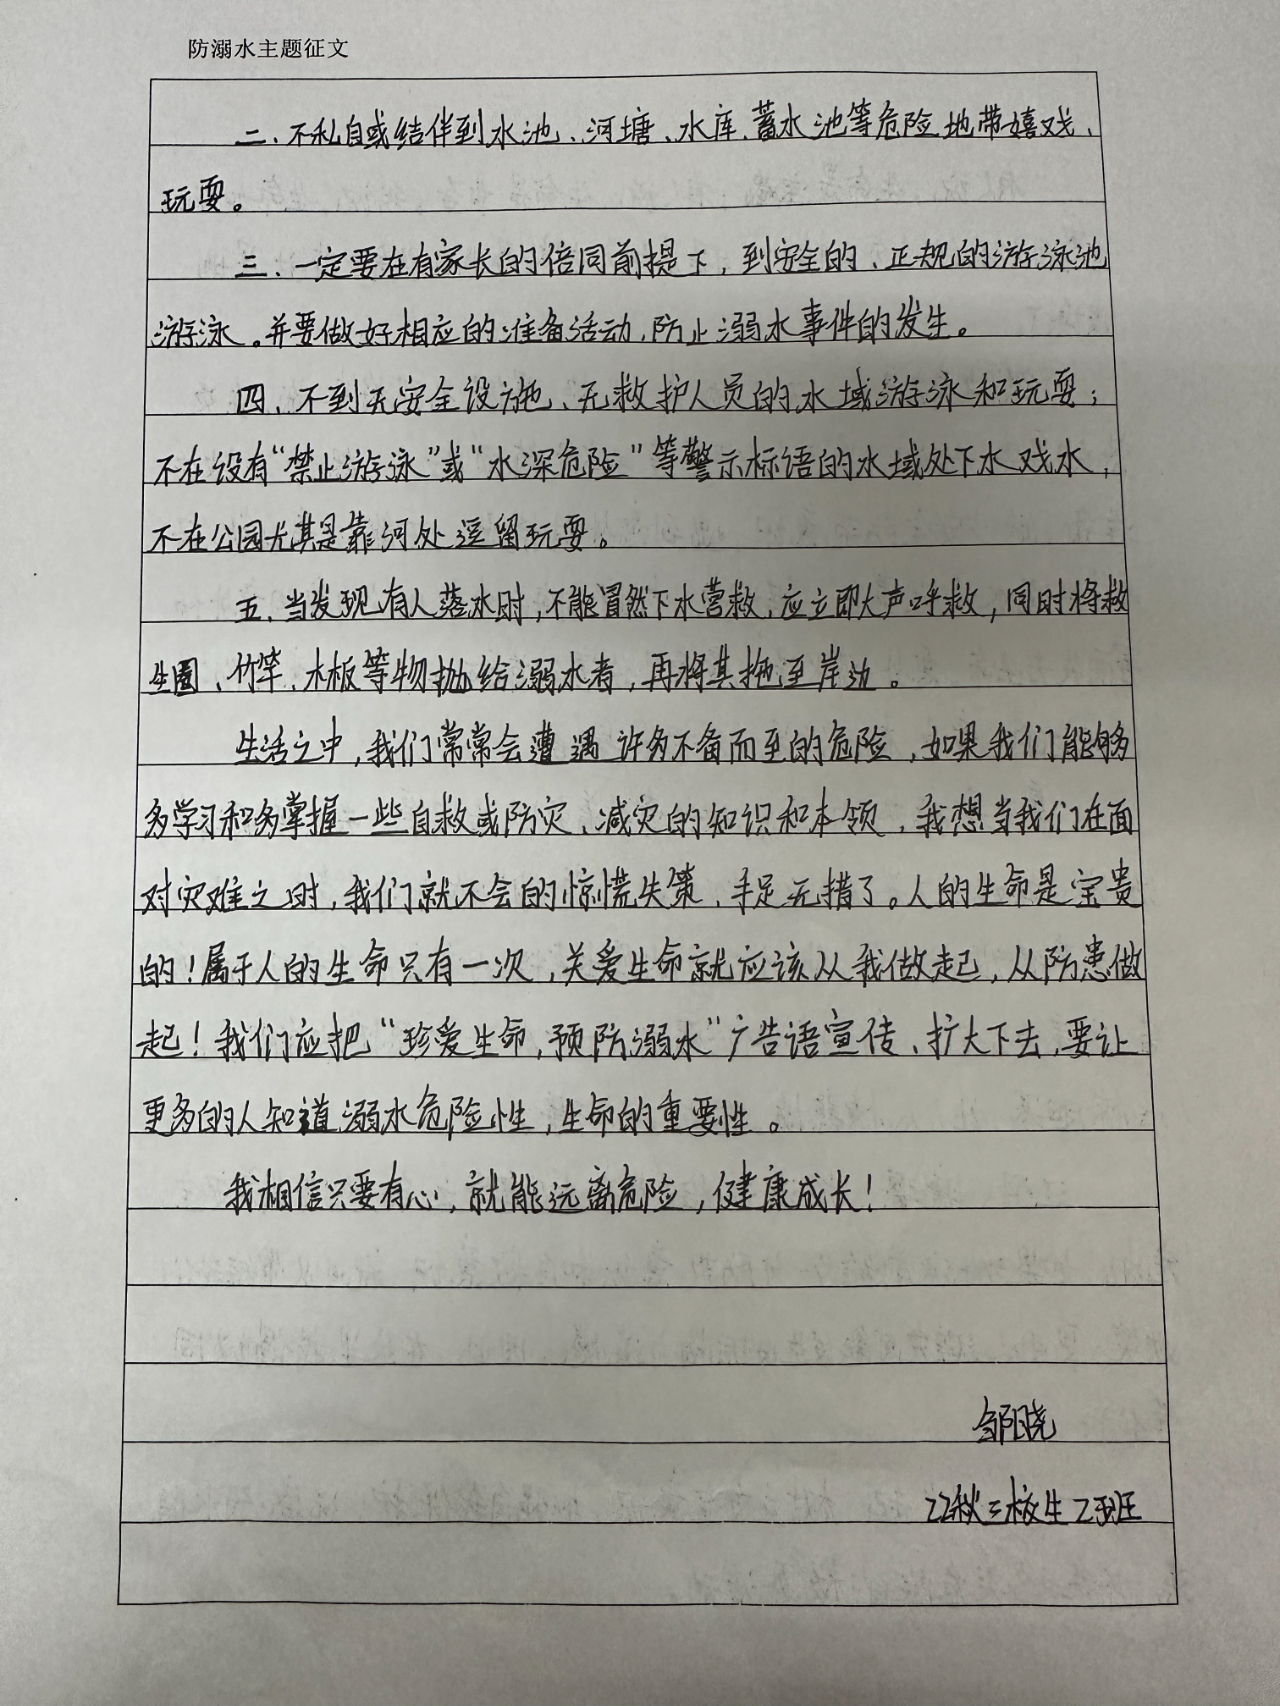 防溺水主题征文
二、不私自或结伴到水池、河塘、水库、蓄水池等危险地带嬉戏、
玩耍。
三、一定要在有家长的倍同前提下，到安全的、正规的游泳池
游泳。并要做好相应的准备活动，防止溺水事件的发生。
四、不到无安全设施、无救护人员的水域游泳和玩耍；
不在设有“禁止游泳”或“水深危险”等警示标语的水域处下水戏水，
不在公园尤其是靠河处逗留玩耍。
五、当发现有人落水时，不能冒然下水营救，应立即大声呼救，同时将救
生圈、竹竿、木板等物抛给溺水者，再将其拖至岸边。
生活之中，我们常常会遭遇许多不备而至的危险，如果我们能够多
多学习和多掌握一些自救或防灾、减灾的知识和本领，我想当我们在面
对灾难之时，我们就不会的惊慌失策、手足无措了。人的生命是宝贵
的！属于人的生命只有一次，关爱生命就应该从我做起，从防患做
起！我们应把“珍爱生命，预防溺水”广告语宣传、扩大下去，要让
更多的人知道溺水危险性，生命的重要性。
我相信只要有心，就能远离危险，健康成长！
邹阳晓
22秋三校生2班